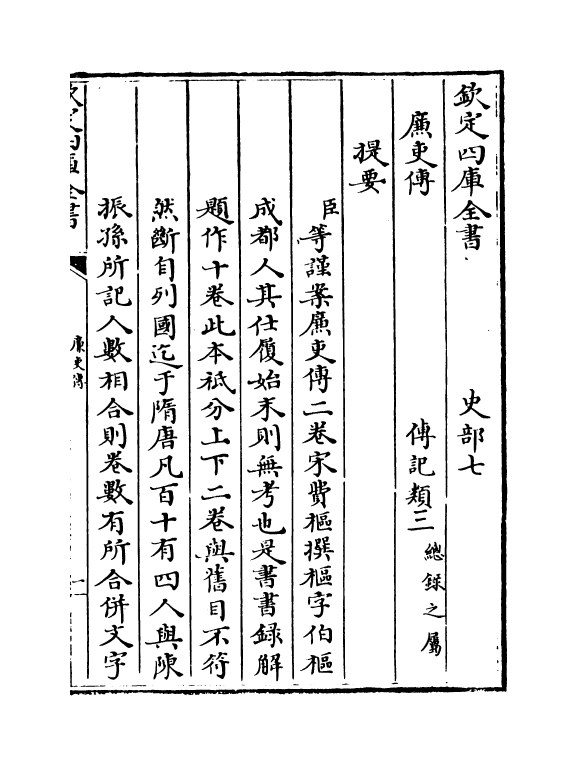 欽定四庫全書　史部七
廉吏傳　傳記類三總錄之屬
提要
臣等謹案廉吏傳二卷宋費樞撰樞字伯樞
成都人其仕履始末則無考也是書書録解
題作十卷此本祗分上下二卷與舊目不符
然斷自列國迄于隋唐凡百十有四人與陳
振孫所記人數相合則卷數有所合併文字
欽定四庫全書
廉吏傳
一